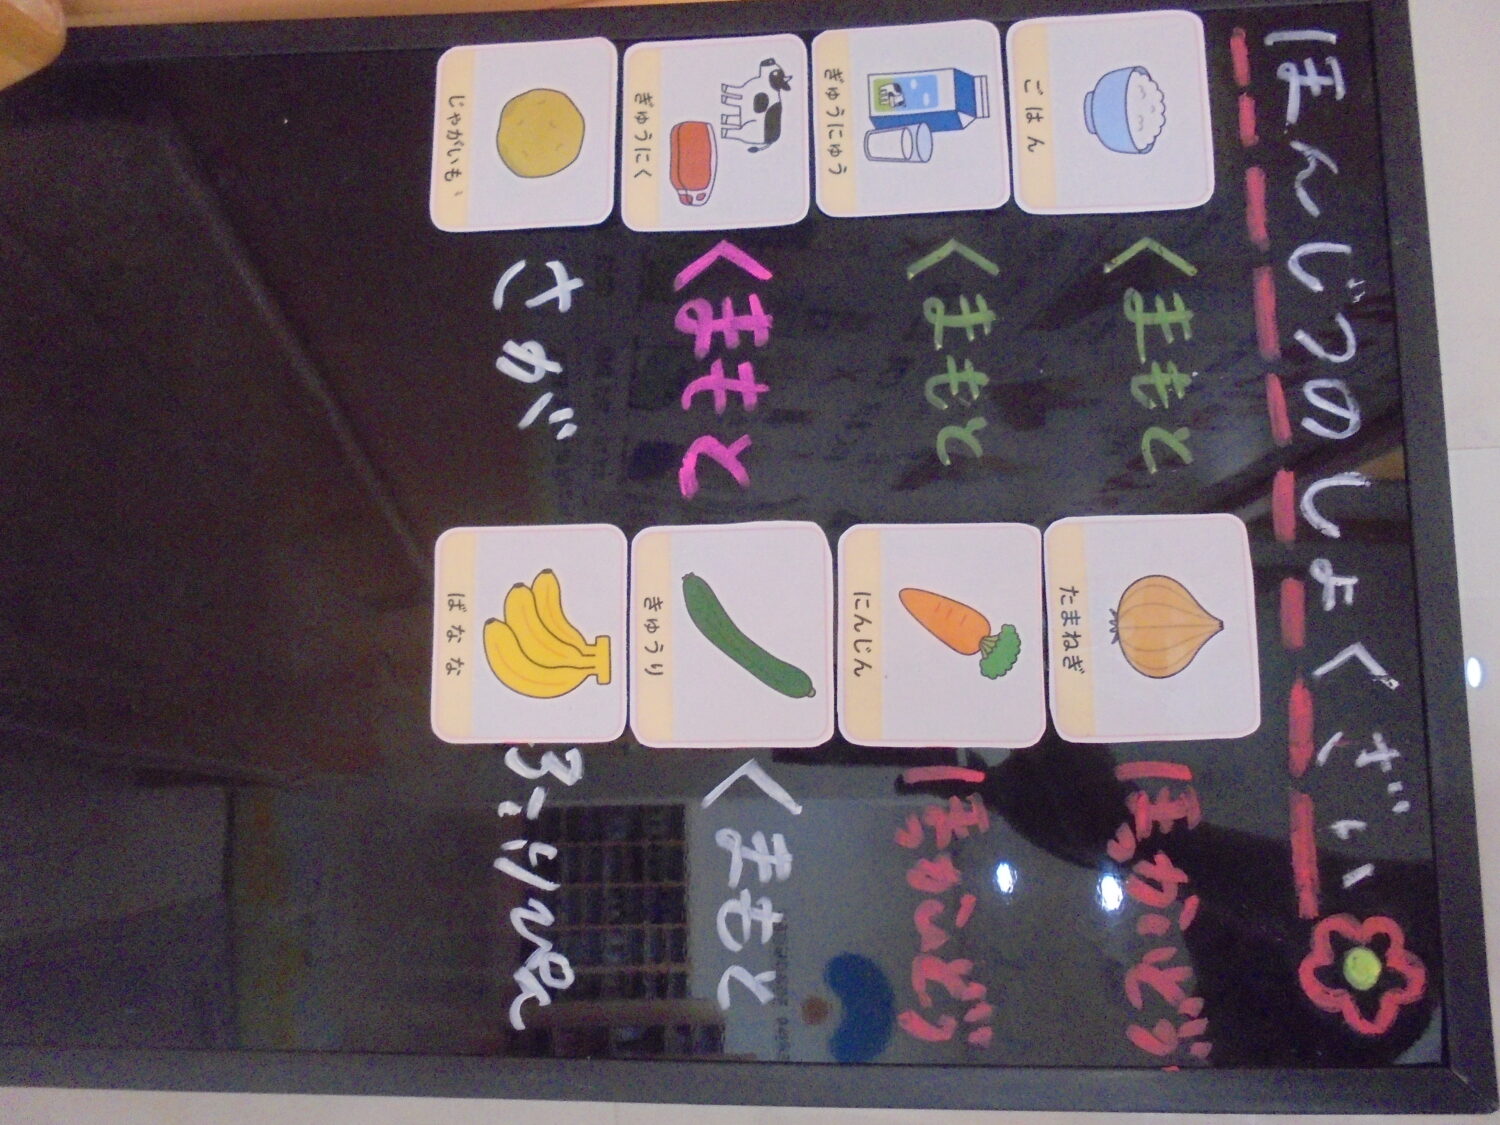 ほんじつのしょくざい
ごはん くまもと
たまねぎ ほっかいどう
ぎゅうにゅう くまもと
にんじん ほっかいどう
ぎゅうにく くまもと
きゅうり くまもと
じゃがいも さが
ばなな ふぃりぴん